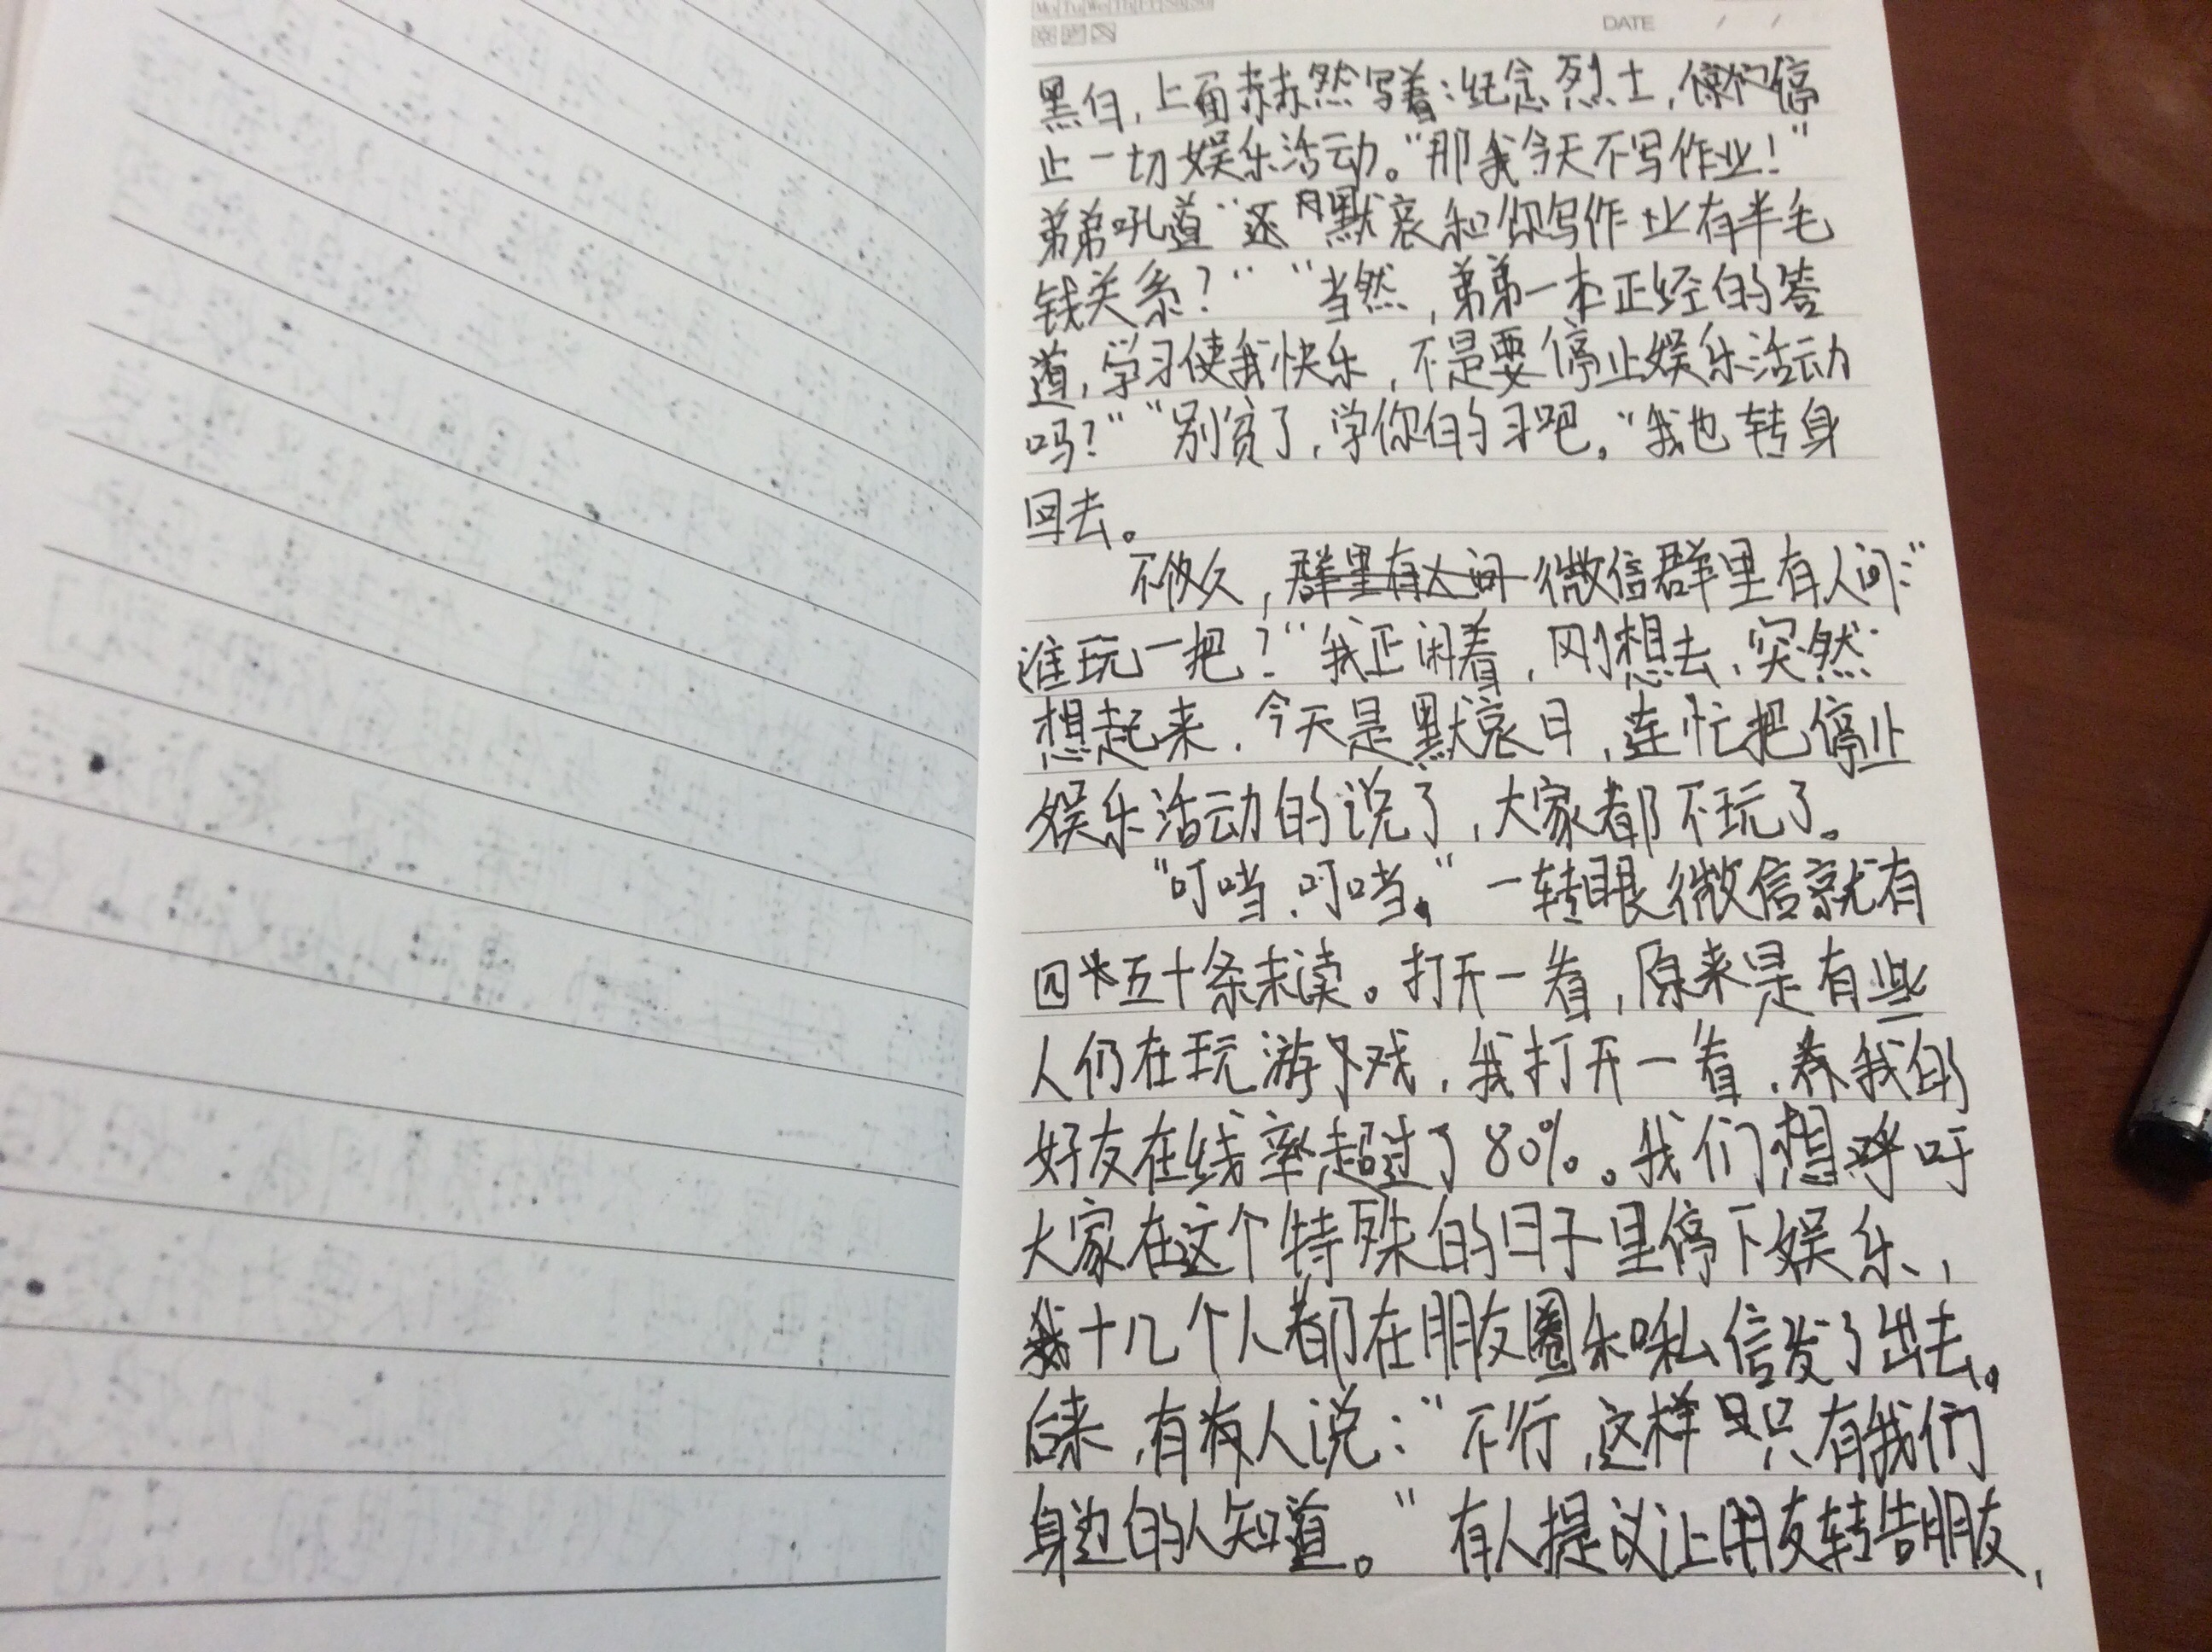 Mo Tu We Th Fr Sa Su
DATE / /
黑白,上面赫然写着:纪念烈士,停
止一切娱乐活动。“那我今天不写作业!”
弟弟吼道“还 默哀和你写作业有半毛
钱关系?”“当然,弟弟一本正经的答
道,学习使我快乐,不是要停止娱乐活动
吗?”“别贫了,学你的习吧。”我也转身
回去。
不久,群里有人问 微信群里有人问:“
谁玩一把?”我正闲着,刚想去,突然
想起来,今天是默哀日,连忙把停止
娱乐活动的说了,大家都不玩了。
“叮当,叮当。”一转眼微信就有
四五十条未读。打开一看,原来是有些
人仍在玩游戏,我打开一看,我的
好友在线率超过了80%。我们想呼吁
大家在这个特殊的日子里停下娱乐,
十几个人都在朋友圈和私信发了出去。
后来,有人说:“不行,这样只有我们
身边的人知道。”有人提议让朋友转告朋友,